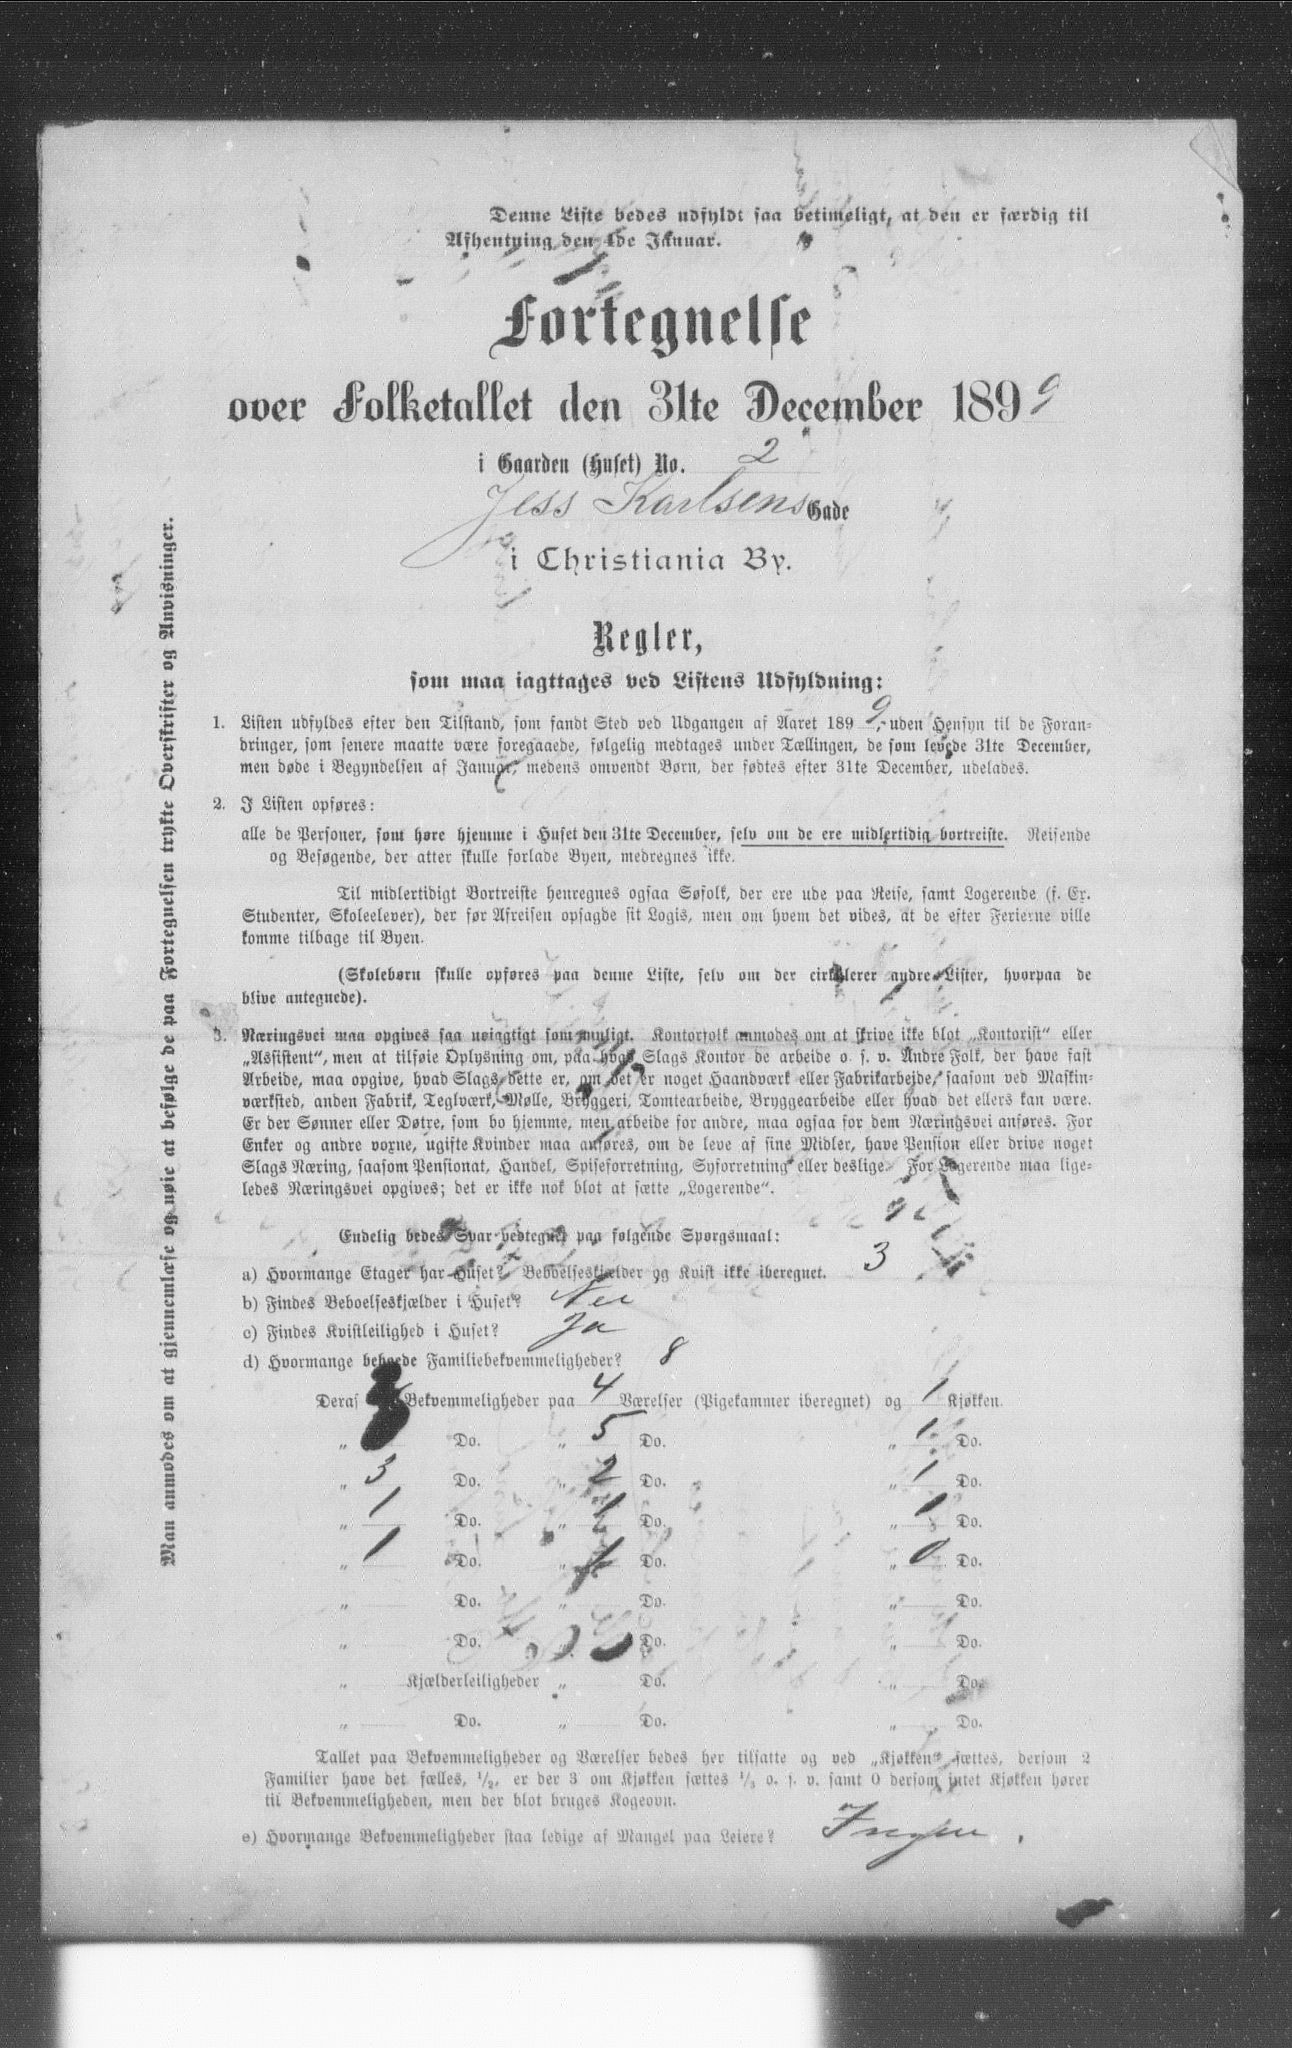 Denne Liste bedes udfyldt saa betimeligt, at den er færdig til
Afhentning den 4de Januar.
Fortegnelse
over Folketallet den 31te December 1899
i Gaarden (Huset) No. 2
Jess Karlsens Gade
i Christiania By.
Regler,
som maa iagttages ved Listens Udfyldning:
1. Listen udfyldes efter den Tilstand, som fandt Sted ved Udgangen af Aaret 1899, uden Hensyn til de Foran-
dringer, som senere maatte være foregaaede, følgelig medtages under Tællingen, de som levede 31te December,
men døde i Begyndelsen af Januar, medens omvendt Børn, der fødtes efter 31te December, udelades.
2. I Listen opføres:
alle de Personer, som høre hjemme i Huset den 31te December, selv om de ere midlertidig bortreiste. Reisende
og Besøgende, der atter skulle forlade Byen, medregnes ikke.
Til midlertidigt Bortreiste henregnes ogsaa Søfolk, der ere ude paa Reise, samt Logerende (f. Ex.
Studenter, Skoleelever), der før Afreisen opsagde sit Logis, men om hvem det vides, at de efter Ferierne ville
komme tilbage til Byen.
(Skolebørn skulle opføres paa denne Liste, selv om der cirkulerer andre Lister, hvorpaa de
blive antegnede).
3. Næringsvei maa opgives saa nøiagtigt som muligt. Kontorfolk anmodes om at skrive ikke blot „Kontorist“ eller
„Assistent“, men at tilføie Oplysning om, paa hvad Slags Kontor de arbeide o. s. v. Andre Folk, der have fast
Arbeide, maa opgive, hvad Slags dette er, om det er noget Haandværk eller Fabrikarbeide, saasom ved Maskin-
værksted, anden Fabrik, Teglværk, Mølle, Bryggeri, Tomtearbeide, Bryggearbeide eller hvad det ellers kan være.
Er der Sønner eller Døtre, som bo hjemme, men arbeide for andre, maa ogsaa for dem Næringsvei anføres. For
Enker og andre voxne, ugifte Kvinder maa anføres, om de leve af sine Midler, have Pension eller drive noget
Slags Næring, saasom Pensionat, Handel, Spiseforretning, Syforretning eller deslige. For Logerende maa lige-
ledes Næringsvei opgives; det er ikke nok blot at sætte „Logerende“.
Endelig bedes Svar vedtegnet paa følgende Spørgsmaal:
a) Hvormange Etager har Huset? Beboelseskjælder og Kvist ikke iberegnet. 3
b) Findes Beboelseskjælder i Huset? Nei
c) Findes Kvistleilighed i Huset? Ja
d) Hvormange beboede Familiebekvemmeligheder? 8
Deraf Bekvemmeligheder paa 4 Værelser (Pigekammer iberegnet) og 1 Kjøkken.
„ Do. „ 5 Do. „ 1 Do.
„ 3 Do. „ 2 Do. „ 1 Do.
„ 1 Do. „ 1 Do. „ 1 Do.
„ 1 Do. „ 1 Do. „ 0 Do.
„ Do. „ Do. „ Do.
„ Do. „ Do. „ Do.
„ Kjælderleiligheder „ Do. „ Do.
„ Do. „ Do. „ Do.
Tallet paa Bekvemmeligheder og Værelser bedes her tilsatte og ved „Kjøkken“ sættes, dersom 2
Familier have det fælles, 1/2, er der 3 om Kjøkken sættes 1/3 o. s. v. samt 0 dersom intet Kjøkken hører
til Bekvemmeligheden, men der blot bruges Kogeovn.
e) Hvormange Bekvemmeligheder staa ledige af Mangel paa Leiere? Ingen.
Man anmodes om at gjennemlæse og nøie at besølge de paa Fortegnelsen trykte Overskrifter og Anvisninger.